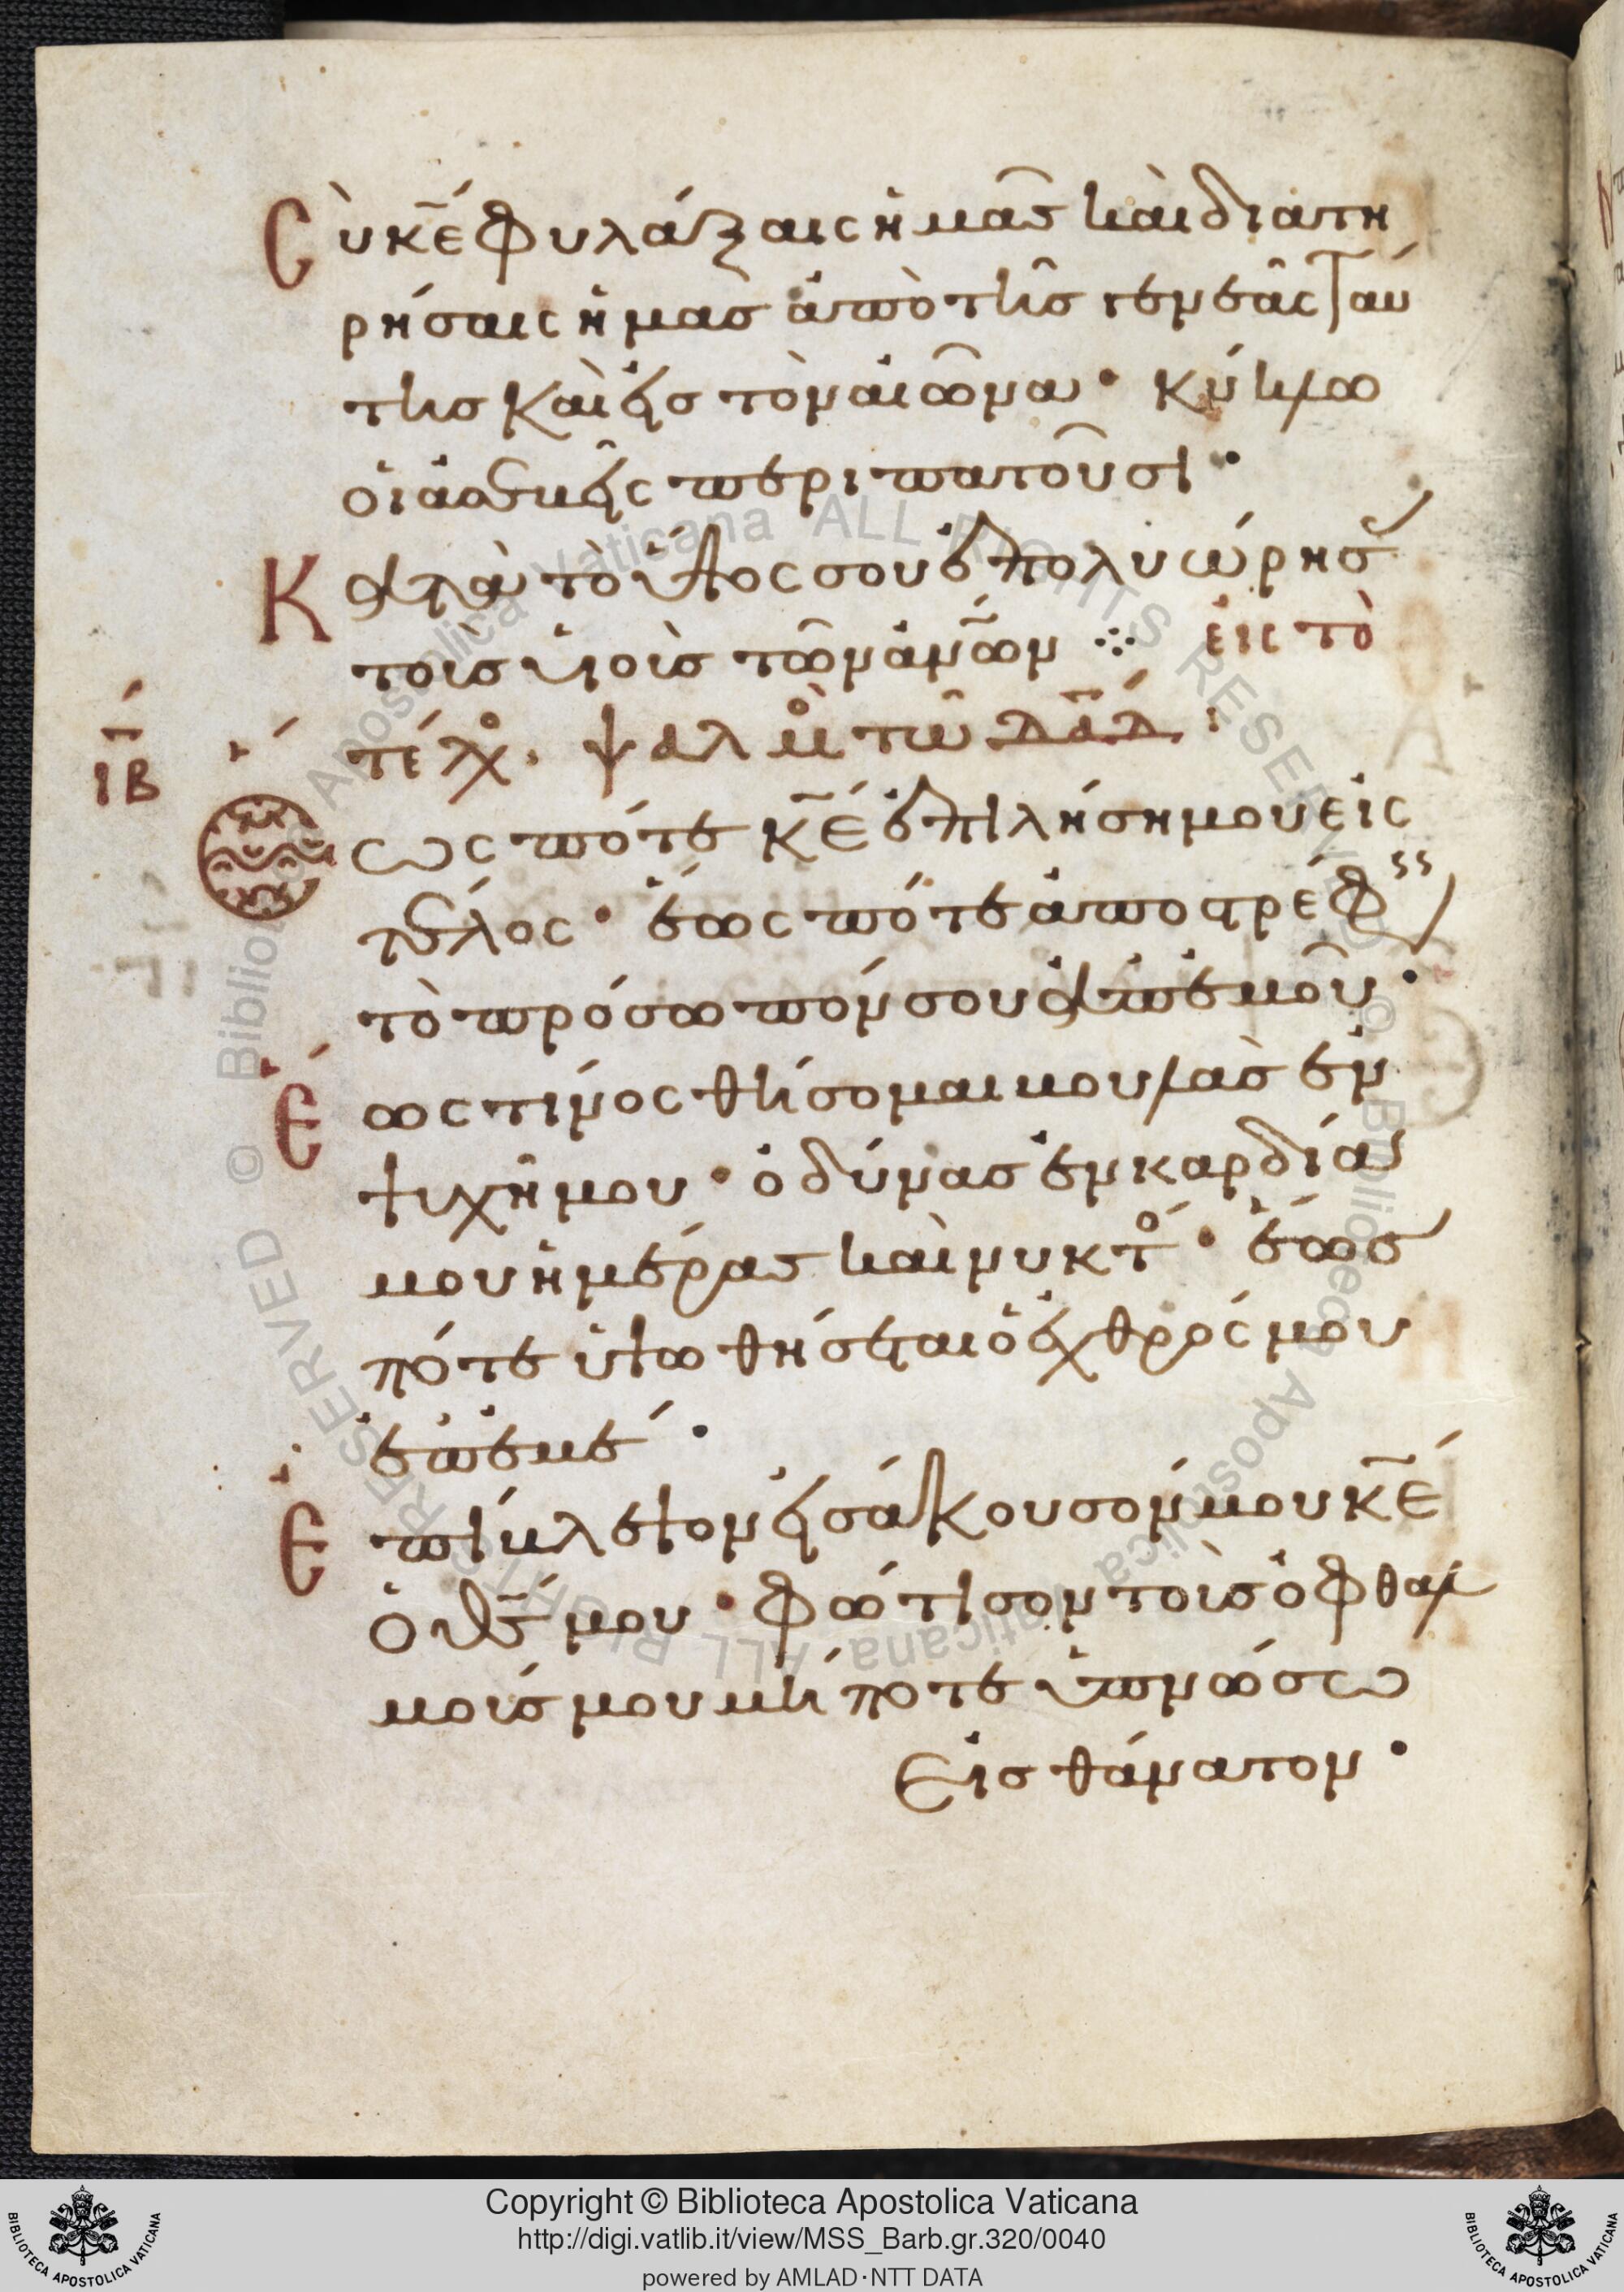 Σὺ κ̅ε̅ φυλάξαις ἡμᾶς καὶ διατη
ρήσαις ἡμας ἀπὸ τῆς γενεᾶς ταύ
της καὶ εἰς τὸν αἰῶνα· κύκλω
οἱ ἀσεβεῖς περιπατοῦσι·
Κατὰ τὸ ὕψος σου ἐπολυώρησ
τοὺς υἱοὺς τῶν ἀν̅ω̅ν ⁘ εἰς τὸ
τέλο. ψαλμο τῶ δ̅α̅δ̅:
ΙΒ
Ἕως πότε κ̅ε̅ ἐπιλήση μου εἰς
τέλος· ἕως πότε ἀποστρέφεις
τὸ πρόσωπόν σου ἀπ' ἐμοῦ·
Ἕως τίνος θήσομαι βουλὰς ἐν
ψυχῆ μου· ὀδύνας ἐν καρδία
μου ἡμέρας καὶ νυκτο· ἕως
πότε ὑψωθήσεται ὁ ἐχθρός μου
ἐπ' ἐμέ·
Ἐπίβλεψον εἰσάκουσόν μου κ̅ε̅
ὁ θ̅ς̅ μου· φώτισον τοὺς ὀφθαλ
μούς μου μήποτε ὑπνώσω
εἰς θάνατον·
Copyright © Biblioteca Apostolica Vaticana
http://digi.vatlib.it/view/MSS_Barb.gr.320/0040
powered by AMLAD·NTT DATA
BIBLIOTECA APOSTOLICA VATICANA
BIBLIOTECA APOSTOLICA VATICANA
© Biblioteca Apostolica Vaticana ALL RIGHTS RESERVED
© Biblioteca Apostolica Vaticana ALL RIGHTS RESERVED